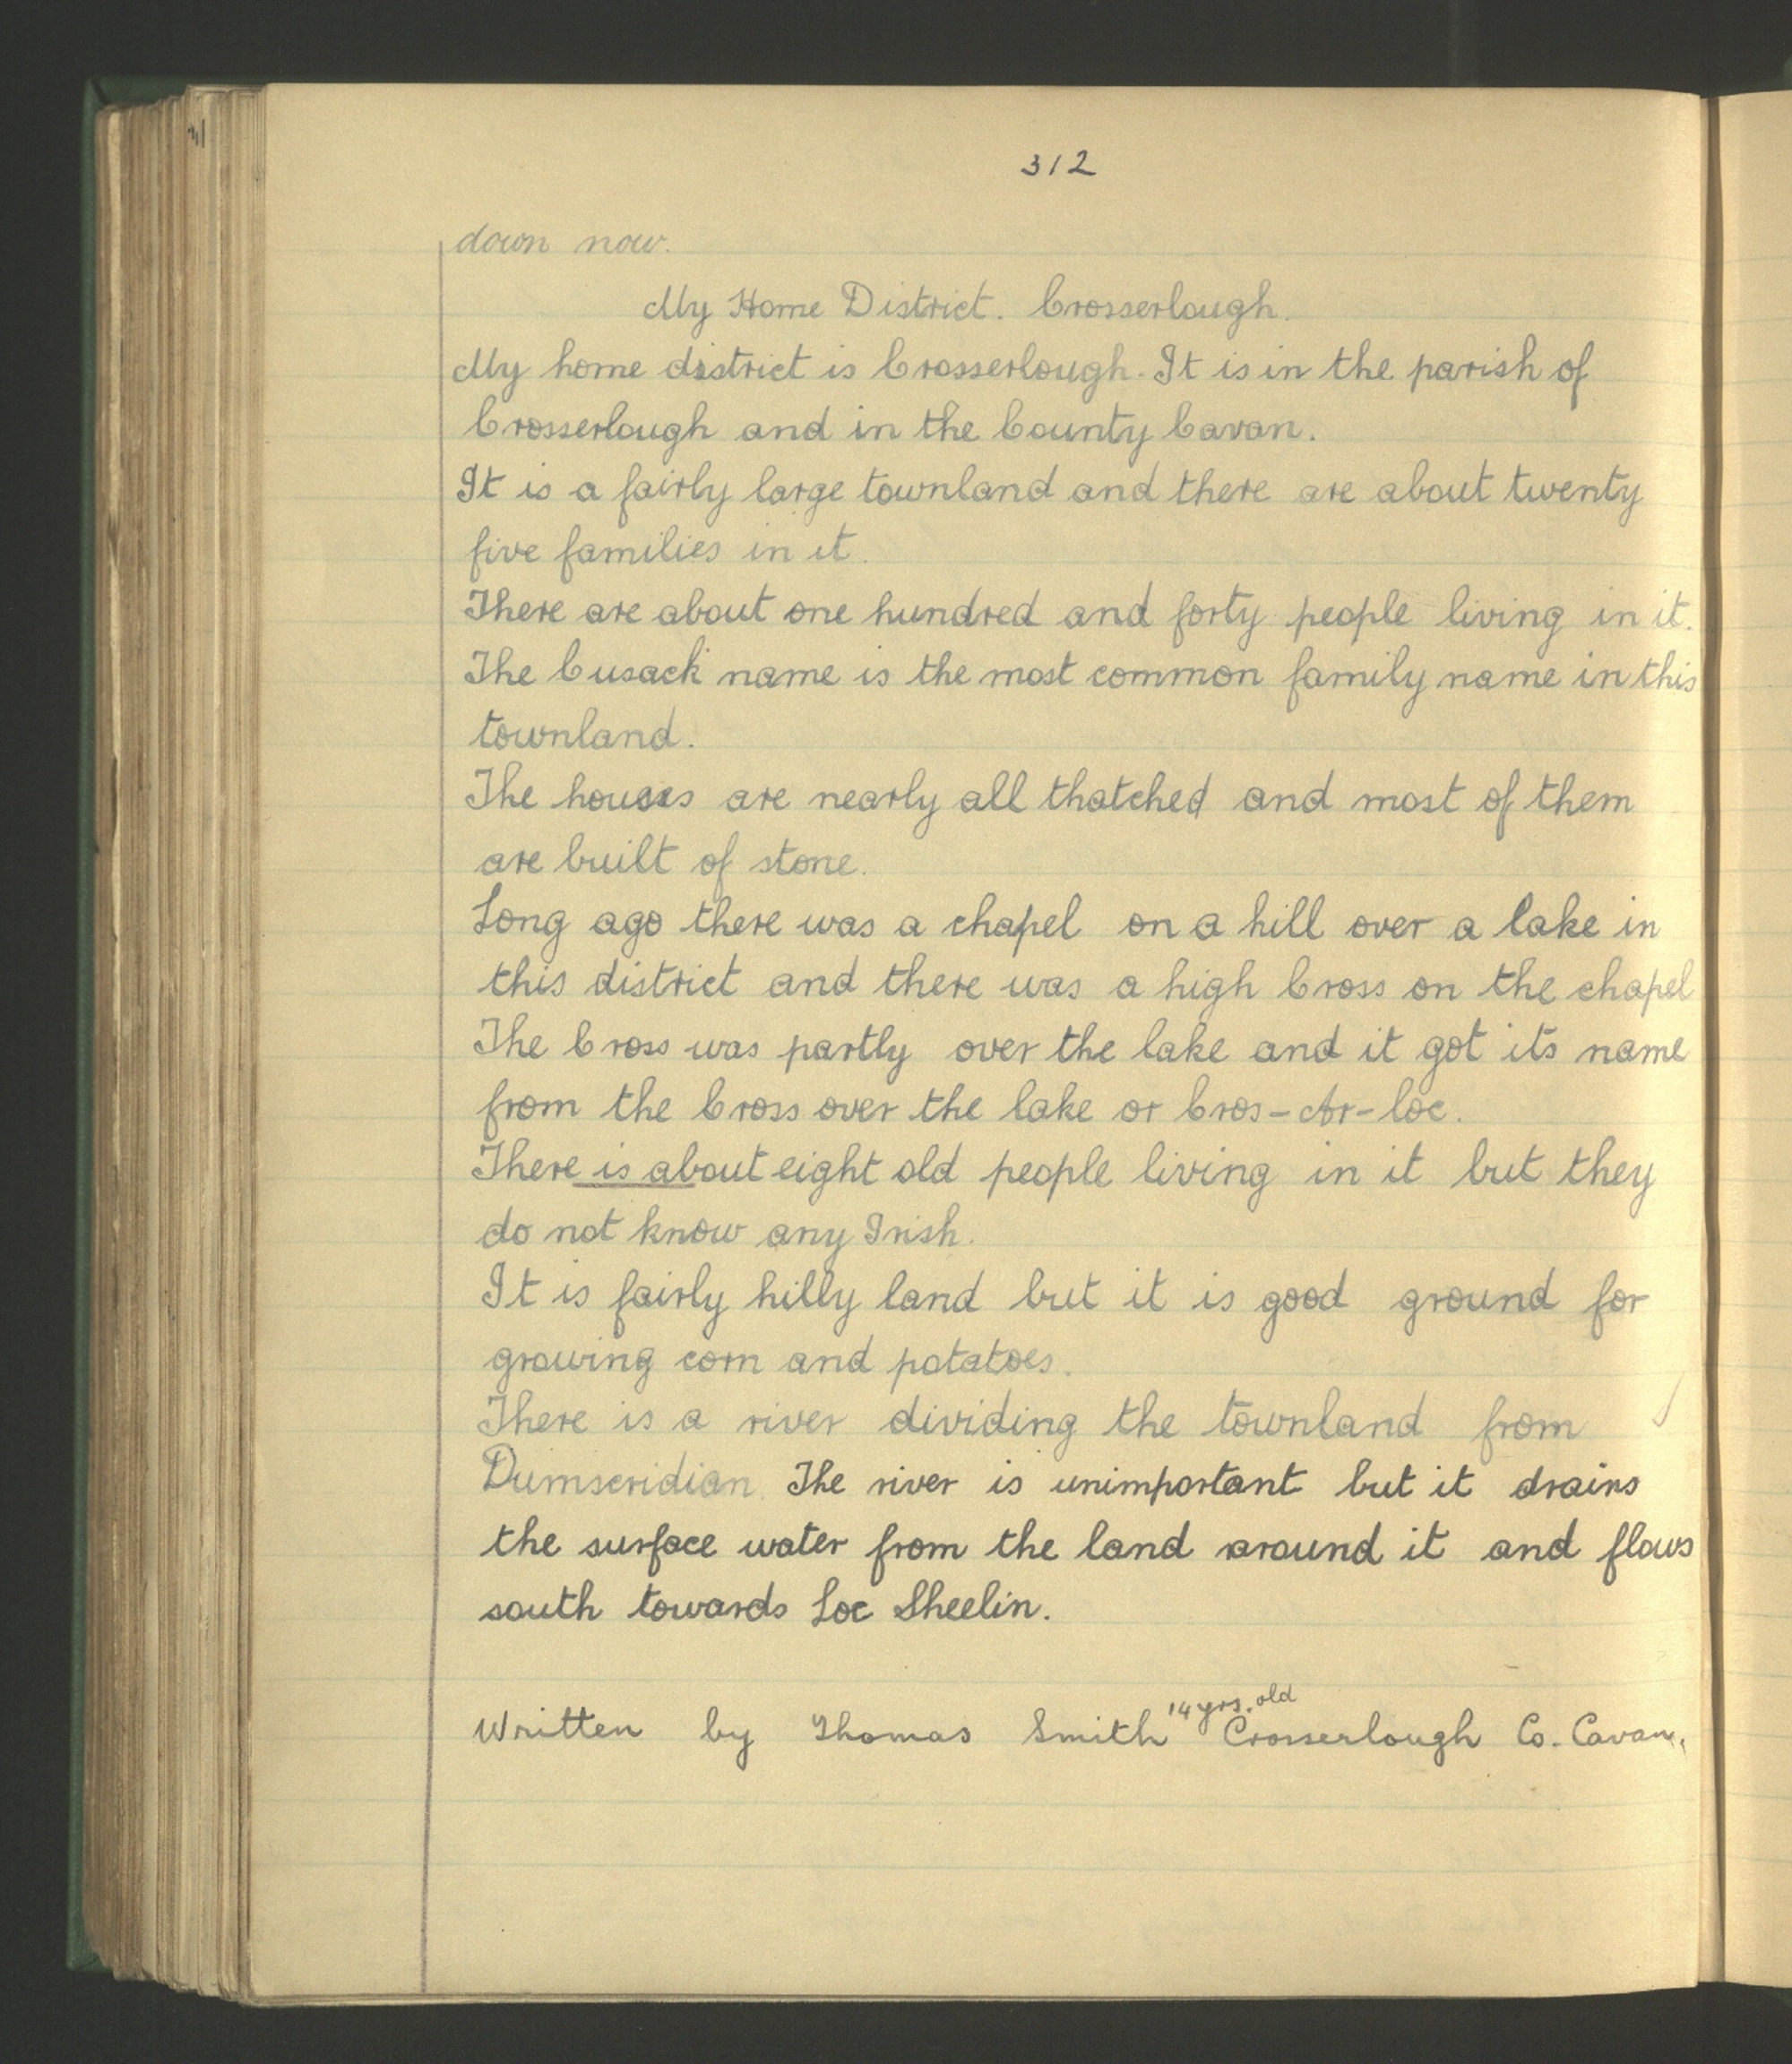 312
down now.
My Home District. Crosserlough.
My home district is Crosserlough. It is in the parish of
Crosserlough and in the County Cavan.
It is a fairly large townland and there are about twenty
five families in it.
There are about one hundred and forty people living in it.
The Cusack name is the most common family name in this
townland.
The houses are nearly all thatched and most of them
are built of stone.
Long ago there was a chapel on a hill over a lake in
this district and there was a high Cross on the chapel
The Cross was partly over the lake and it got its name
from the Cross over the lake or Cros-Ar-loc.
There is about eight old people living in it but they
do not know any Irish.
It is fairly hilly land but it is good ground for
growing corn and potatoes.
There is a river dividing the townland from
Dumscridian. The river is unimportant but it drains
the surface water from the land around it and flows
south towards Loc Sheelin.
14 yrs. old
Written by Thomas Smith Crosserlough Co. Cavan.